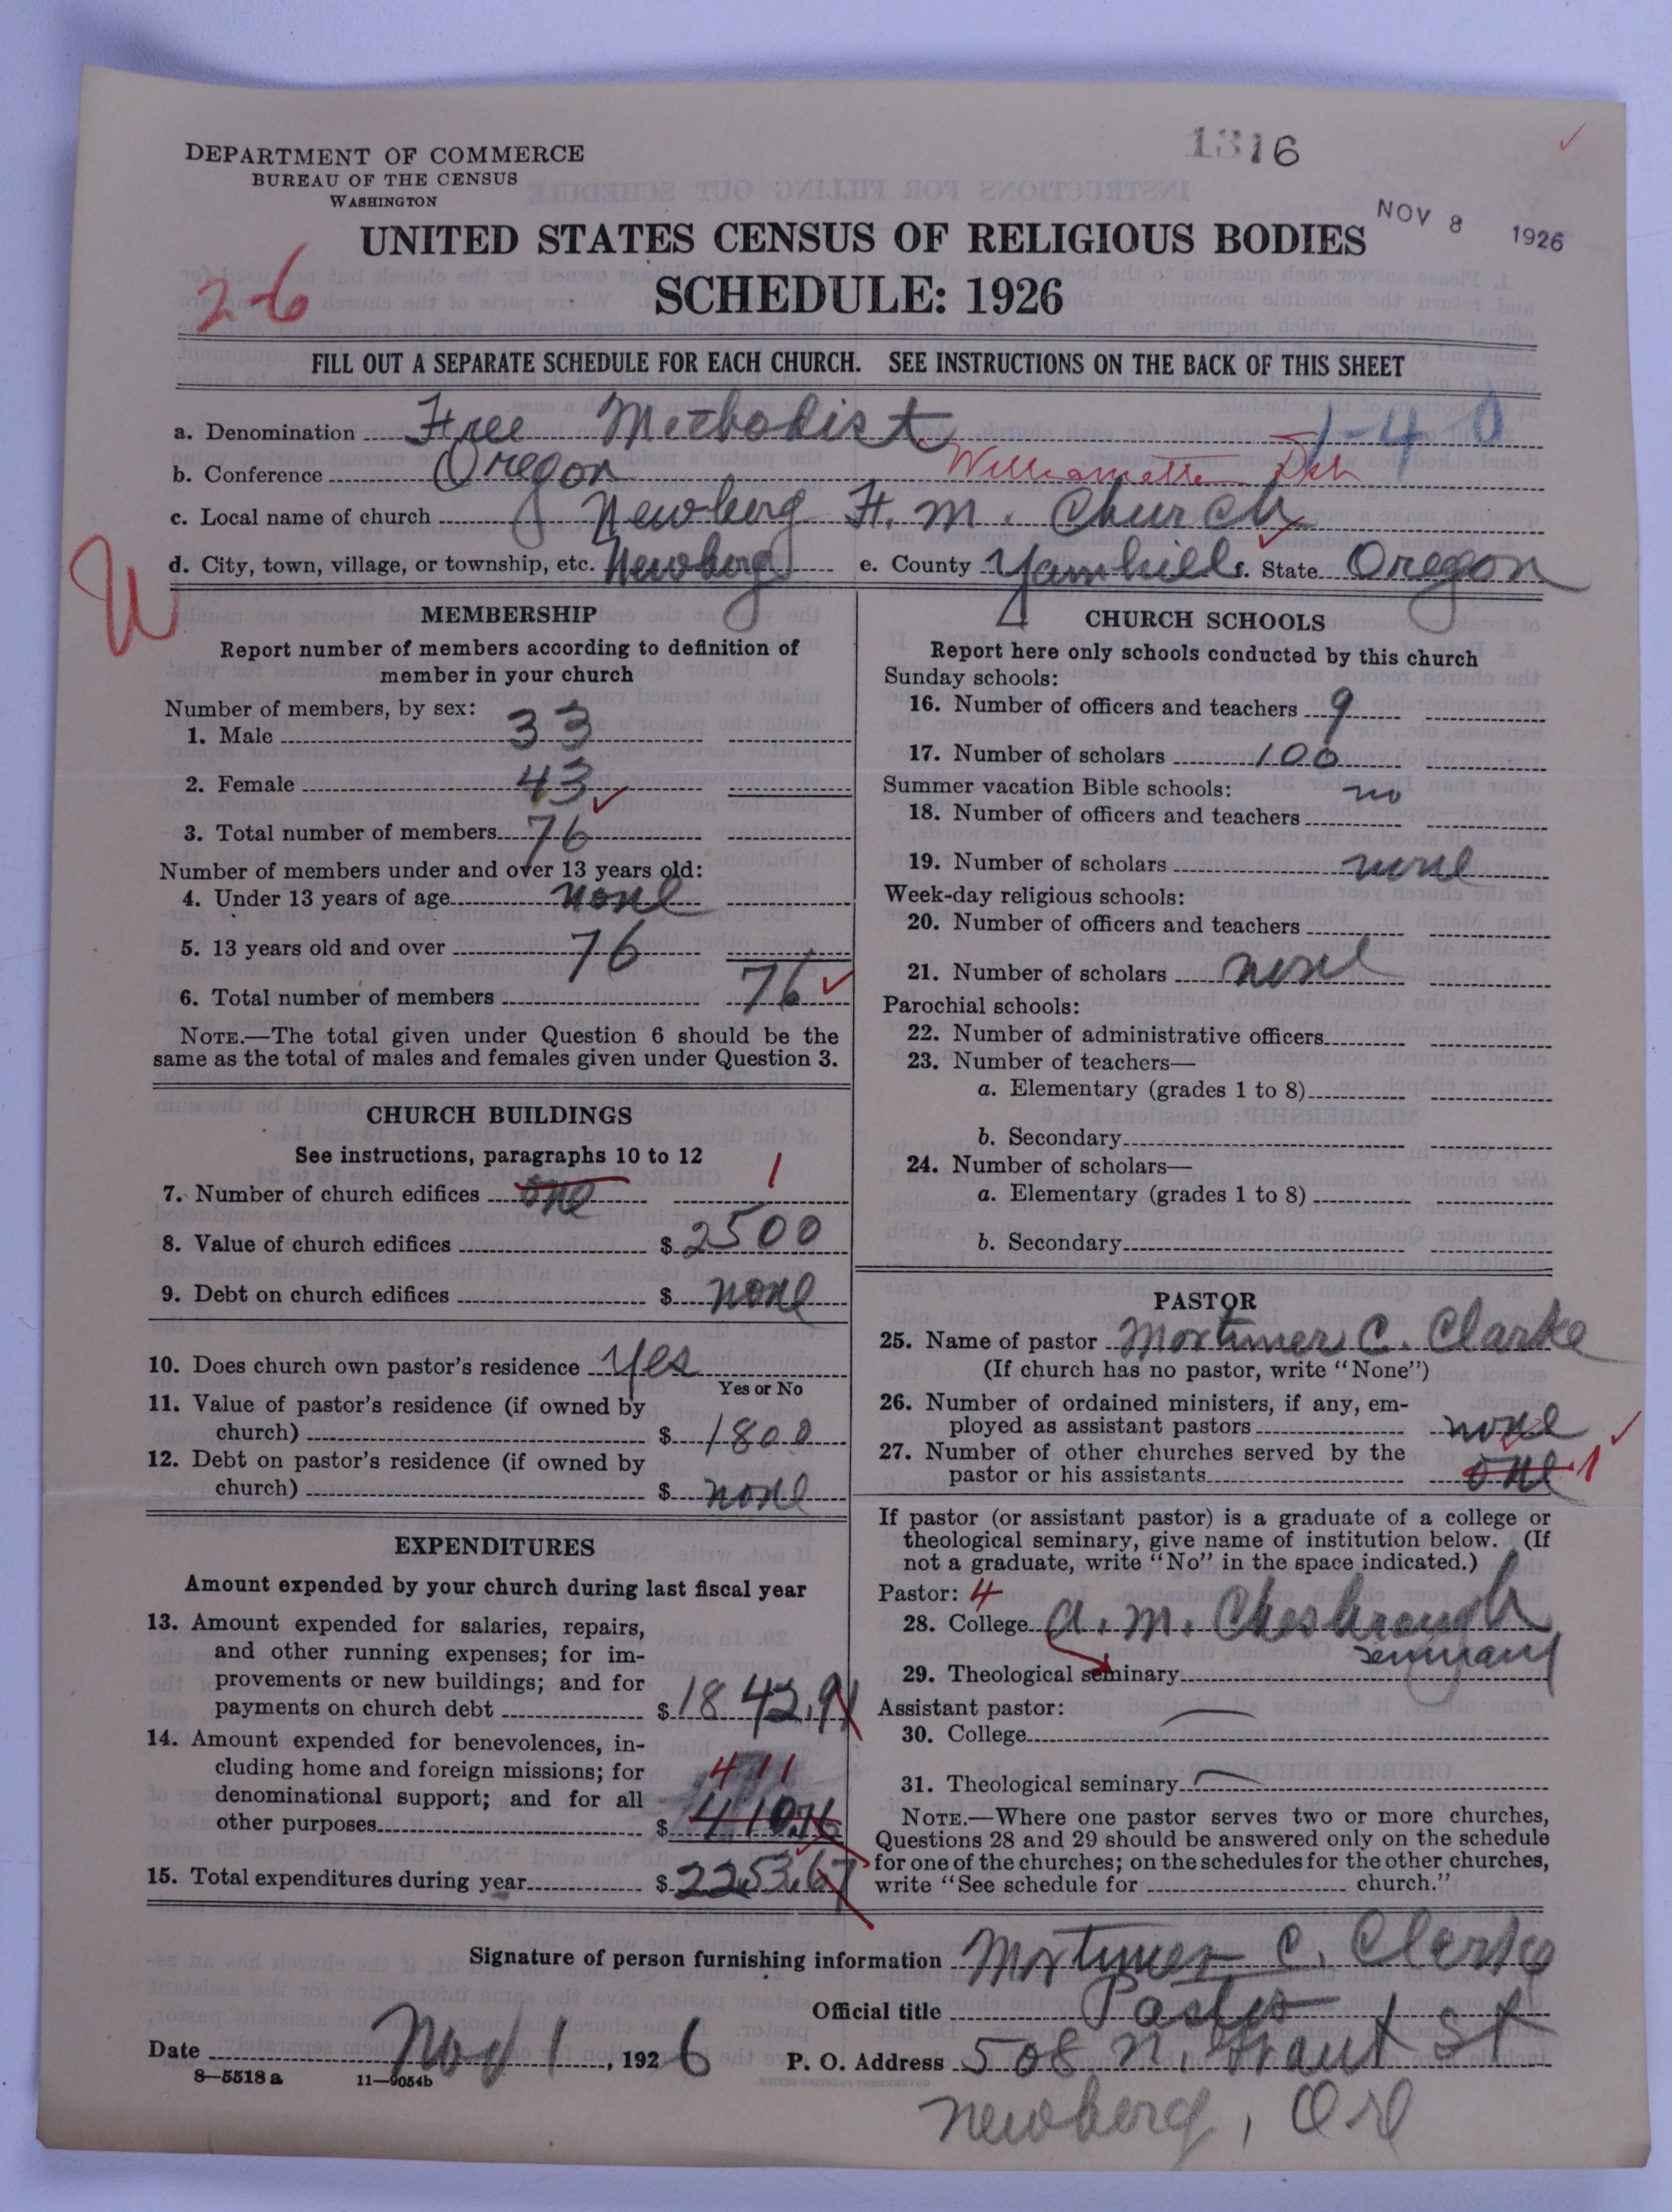 1316
DEPARTMENT OF COMMERCE
BUREAU OF THE CENSUS
WASHINGTON
NOV 8 1926
UNITED STATES CENSUS OF RELIGIOUS BODIES
SCHEDULE: 1926
26
FILL OUT A SEPARATE SCHEDULE FOR EACH CHURCH. SEE INSTRUCTIONS ON THE BACK OF THIS SHEET
a. Denomination Free Methodist 1-40
b. Conference Oregon Williamette
c. Local name of church Newberg F. M. Church
d. City, town, village, or township, etc. Newberg e. County Yamhill f. State Oregon
W
MEMBERSHIP
Report number of members according to definition of
member in your church
Number of members, by sex:
1. Male 33
2. Female 43
3. Total number of members 76
Number of members under and over 13 years old:
4. Under 13 years of age none
5. 13 years old and over 76
6. Total number of members 76
NOTE.—The total given under Question 6 should be the
same as the total of males and females given under Question 3.
CHURCH BUILDINGS
See instructions, paragraphs 10 to 12
7. Number of church edifices one 1
8. Value of church edifices $ 2500
9. Debt on church edifices $ none
10. Does church own pastor's residence yes
Yes or No
11. Value of pastor's residence (if owned by
church) $ 1800
12. Debt on pastor's residence (if owned by
church) $ none
EXPENDITURES
Amount expended by your church during last fiscal year
13. Amount expended for salaries, repairs,
and other running expenses; for im-
provements or new buildings; and for
payments on church debt $ 1842.91
14. Amount expended for benevolences, in-
cluding home and foreign missions; for 411
denominational support; and for all
other purposes $ 410.76
15. Total expenditures during year $ 2253.67
CHURCH SCHOOLS
Report here only schools conducted by this church
Sunday schools:
16. Number of officers and teachers 9
17. Number of scholars 100
Summer vacation Bible schools: no
18. Number of officers and teachers
19. Number of scholars none
Week-day religious schools:
20. Number of officers and teachers
21. Number of scholars none
Parochial schools:
22. Number of administrative officers
23. Number of teachers—
a. Elementary (grades 1 to 8)
b. Secondary
24. Number of scholars—
a. Elementary (grades 1 to 8)
b. Secondary
PASTOR
25. Name of pastor Mortimer C. Clarke
(If church has no pastor, write "None")
26. Number of ordained ministers, if any, em-
ployed as assistant pastors none
27. Number of other churches served by the
pastor or his assistants one 1
If pastor (or assistant pastor) is a graduate of a college or
theological seminary, give name of institution below. (If
not a graduate, write "No" in the space indicated.)
Pastor: 4
28. College A. M. Chesbrough
seminary
29. Theological seminary
Assistant pastor:
30. College
31. Theological seminary
NOTE.—Where one pastor serves two or more churches,
Questions 28 and 29 should be answered only on the schedule
for one of the churches; on the schedules for the other churches,
write "See schedule for church."
Signature of person furnishing information Mortimer C. Clarke
Official title Pastor
Date Nov 1, 1926 P. O. Address 508 N. Grant St
8—5518a 11—9054b
Newberg, Ore